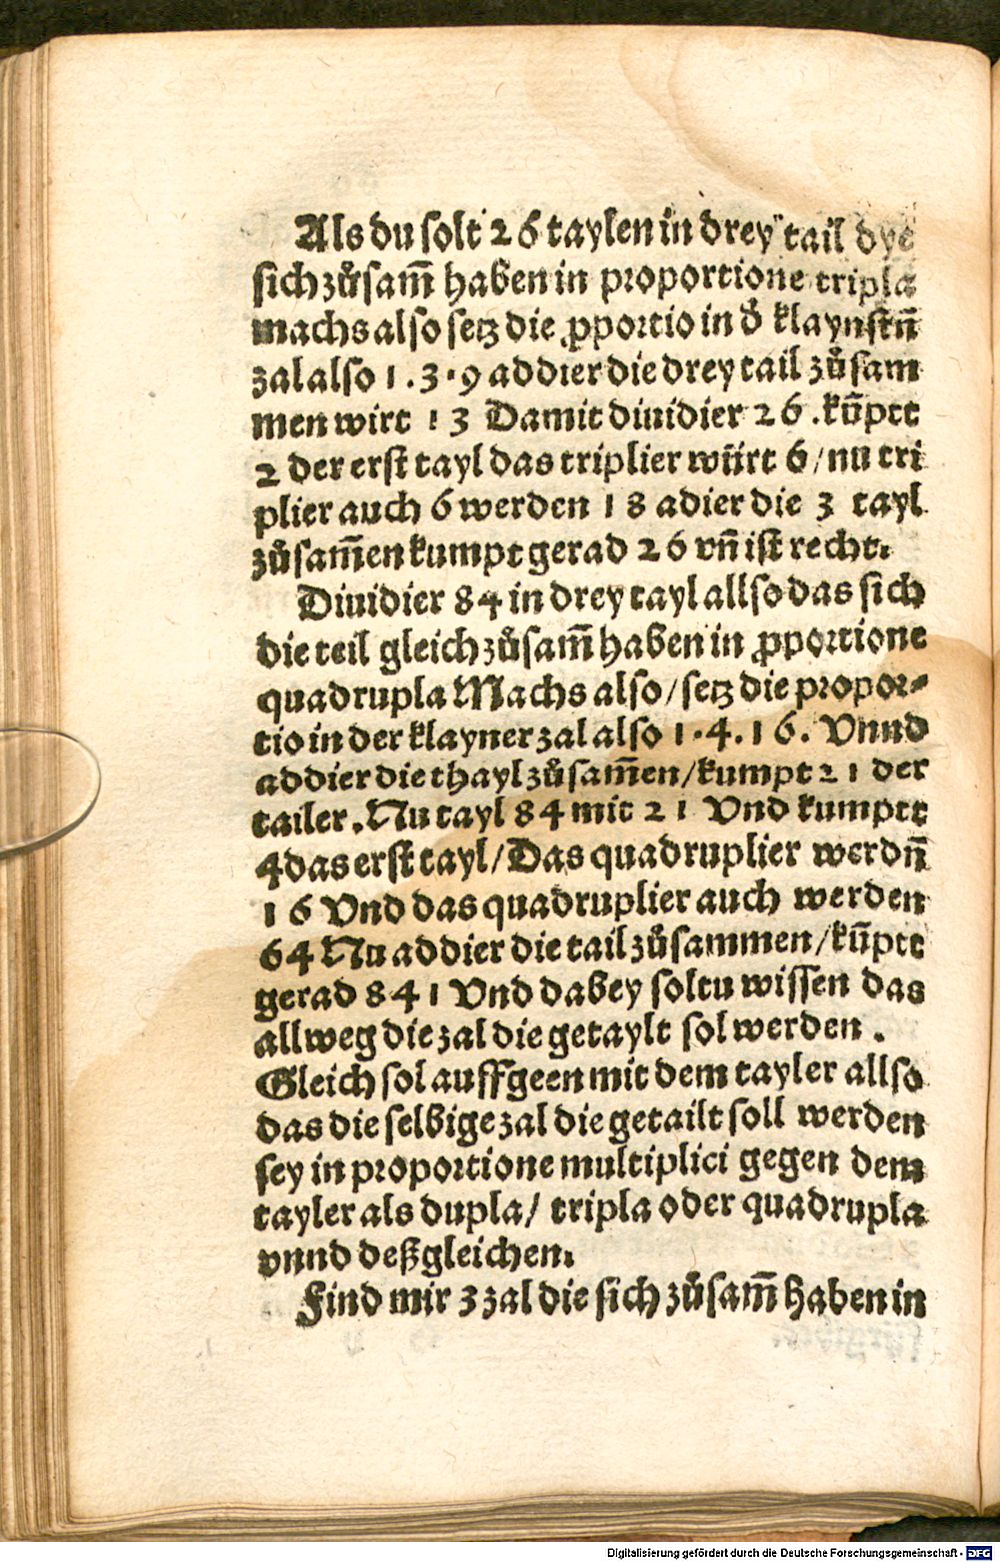 Als du solt 26 taylen in drey tail dye
sich zůsam̃ haben in proportione tripla
machs also setz die ꝓportio in d̕ klaynstñ
zal also 1.3.9 addier die drey tail zůsam
men wirt 13 Damit diuidier 26.kũptt
2 der erst tayl das triplier wüirt 6/nu tri
plier auch 6 werden 18 adier die 3 tayl
zůsam̃en kumpt gerad 26 vñ ist recht.
Diuidier 84 in drey tayl allso das sich
die teil gleich zůsam̃ haben in ꝓportione
quadrupla Machs also/setz die propor⸗
tio in der klayner zal also 1.4.16. Vnnd
addier die thayl zůsam̃en/kumpt 21 der
tailer. Nu tayl 84 mit 21 Vnd kumptt
4 das erst tayl/Das quadruplier werdñ
16 Vnd das quadruplier auch werden
64 Nu addier die tail zůsammen/kũptt
gerad 841 Vnd dabey soltu wissen das
allweg die zal die getaylt sol werden.
Gleich sol auffgeen mit dem tayler allso
das die selbige zal die getailt soll werden
sey in proportione multiplici gegen dem
tayler als dupla/ tripla oder quadrupla
vnnd deßgleichen.
Find mir 3 zal die sich zůsam̃ haben in
Digitalisierung gefördert durch die Deutsche Forschungsgemeinschaft - DFG